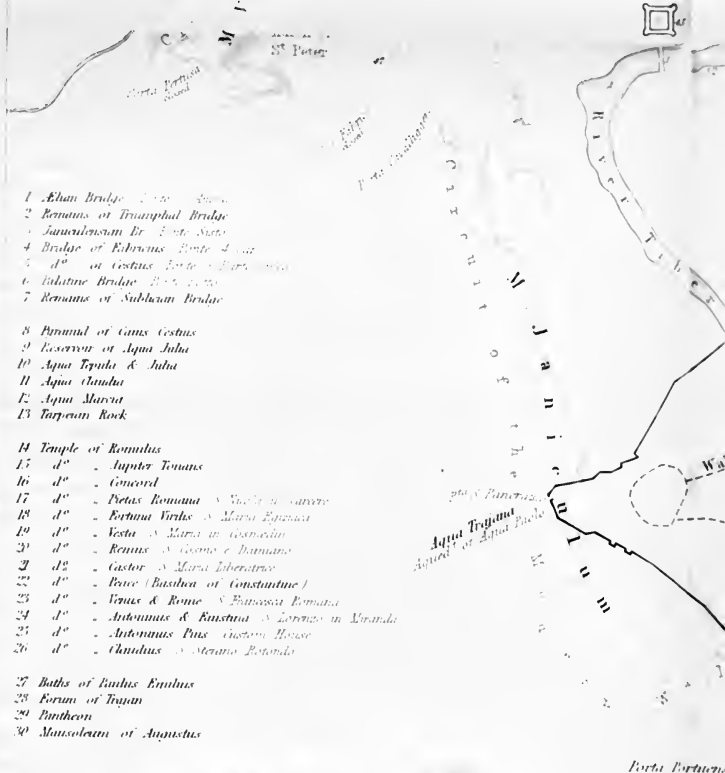 St Peter
Porta Pertusa
closed
Porta Cavallaggieri
River Tiber
Circuit of the
M. Janiculum
1 Ælian Bridge
2 Remains of Triumphal Bridge
Janiculensian Br Ponte Sisto
4 Bridge of Fabricius Ponte 4
5 do of Cestius Ponte
6 Palatine Bridge
7 Remains of Sublician Bridge
8 Pyramid of Caius Cestius
9 Reservoir of Aqua Julia
10 Aqua Tepula & Julia
11 Aqua Claudia
12 Aqua Marcia
13 Tarpeian Rock
14 Temple of Romulus
15 do „ Jupiter Tonans
16 do „ Concord
17 do „ Pietas Romana S Nicola in Carcere
18 do „ Fortuna Virilis S Maria Egiziaca
19 do „ Vesta S Maria in Cosmedin
20 do „ Remus S Cosmo e Damiano
21 do „ Castor S Maria Liberatrice
22 do „ Peace (Basilica of Constantine)
23 do „ Venus & Rome S Francesca Romana
24 do „ Antoninus & Faustina S Lorenzo in Miranda
25 do „ Antoninus Pius Custom House
26 do „ Claudius S Stefano Rotondo
27 Baths of Paulus Emilius
28 Forum of Trajan
29 Pantheon
30 Mausoleum of Augustus
pta S Pancrazio
Aqua Trajana
Aquedt of Aqua Paola
Wal
Porta Portuen